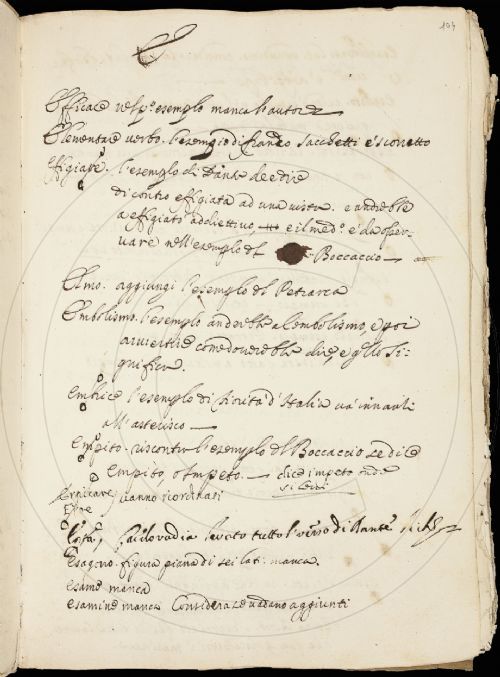 194
E
Efficace nel p.º esempio manca l'autore
Elementare verbo. l'esempio di Franco Sacchetti è scorretto
Effigiare. l'esempio di Dante dee dire
di contro effigiata ad una vista. e andrebbe
a effigiato addiettivo, e il med.º è da osser-
vare nell'esempio del Boccaccio
Elmo. aggiungi l'esempio del Petrarca
Embolismo. l'esempio andrebbe a l'embolismo, e poi
avvertire come dovrebbe dire, e quello si-
gnifica.
Embrice l'esempio di Cirita d'Italia va innanzi
all'asterisco
Empito. riscontra l'esempio del Boccaccio se dice
Empito, o Impeto. dice impeto onde
si levi
Erpicare vanno riordinati
Erpe
levato tutto l'verso di Dante
Esagono. figura piana di sei lati. manca.
esame manca
esamine manca Considera se vadano aggiunti